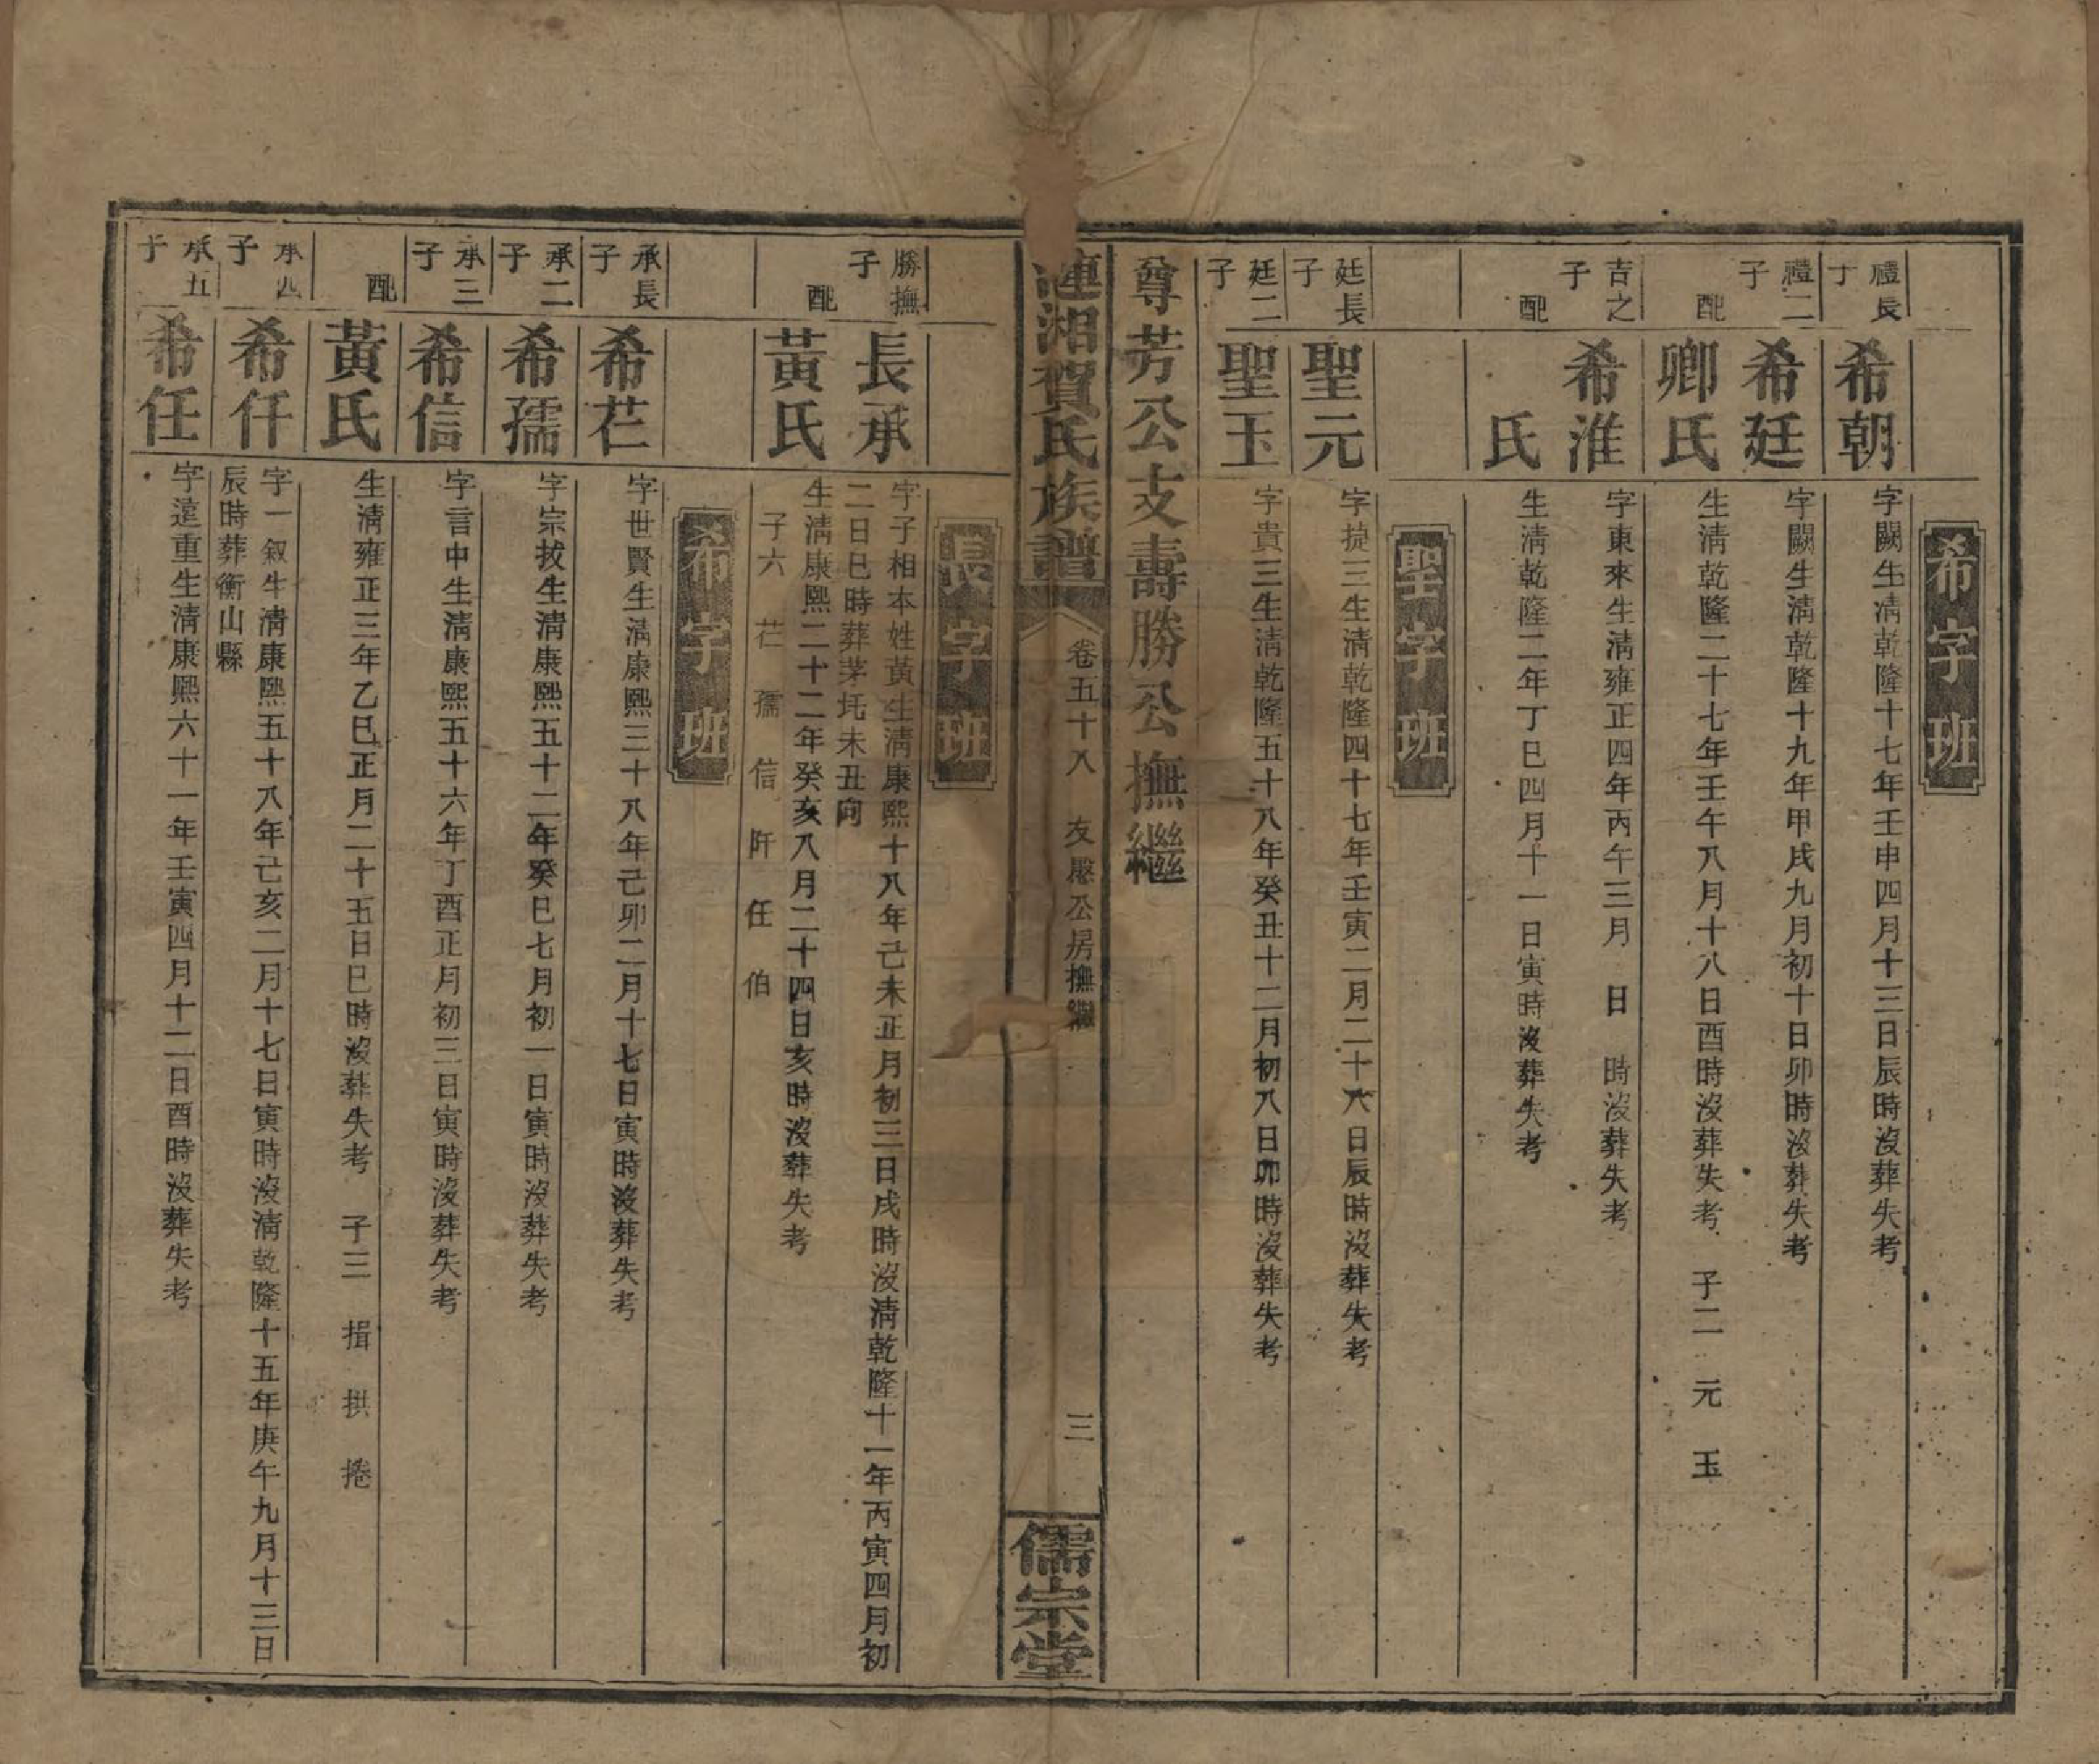 希字班
禮長子
希朝
字闕生清乾隆十七年壬申四月十三日辰時沒葬失考
禮二子
希廷
字闕生清乾隆十九年甲戌九月初十日卯時沒葬失考
配
卿氏
生清乾隆二十七年壬午八月十八日酉時沒葬失考 子二 元 玉
吉之子
希淮
字東來生清雍正四年丙午三月 日 時沒葬失考
配
氏
生清乾隆二年丁巳四月十一日寅時沒葬失考
聖字班
廷長子
聖元
字捷三生清乾隆四十七年壬寅二月二十六日辰時沒葬失考
廷二子
聖玉
字貴三生清乾隆五十八年癸丑十二月初八日卯時沒葬失考
尊芳公支壽勝公撫繼
漣湘賀氏族譜
卷五十八 友愍公房撫繼
三
儒宗堂
長字班
勝撫子
長承
字子相本姓黃生清康熙十八年己未正月初三日戌時沒清乾隆十一年丙寅四月初
二日巳時葬茅坨未丑向
配
黃氏
生清康熙二十二年癸亥八月二十四日亥時沒葬失考
子六 芢 孺 信 仟 任 伯
希字班
承長子
希芢
字世賢生清康熙三十八年己卯二月十七日寅時沒葬失考
承二子
希孺
字宗拔生清康熙五十二年癸巳七月初一日寅時沒葬失考
承三子
希信
字言中生清康熙五十六年丁酉正月初三日寅時沒葬失考
配
黃氏
生清雍正三年乙巳正月二十五日巳時沒葬失考 子三 揖 拱 捲
承四子
希仟
字一叙生清康熙五十八年己亥二月十七日寅時沒清乾隆十五年庚午九月十三日
辰時葬衡山縣
承五子
希任
字遠重生清康熙六十一年壬寅四月十二日酉時沒葬失考